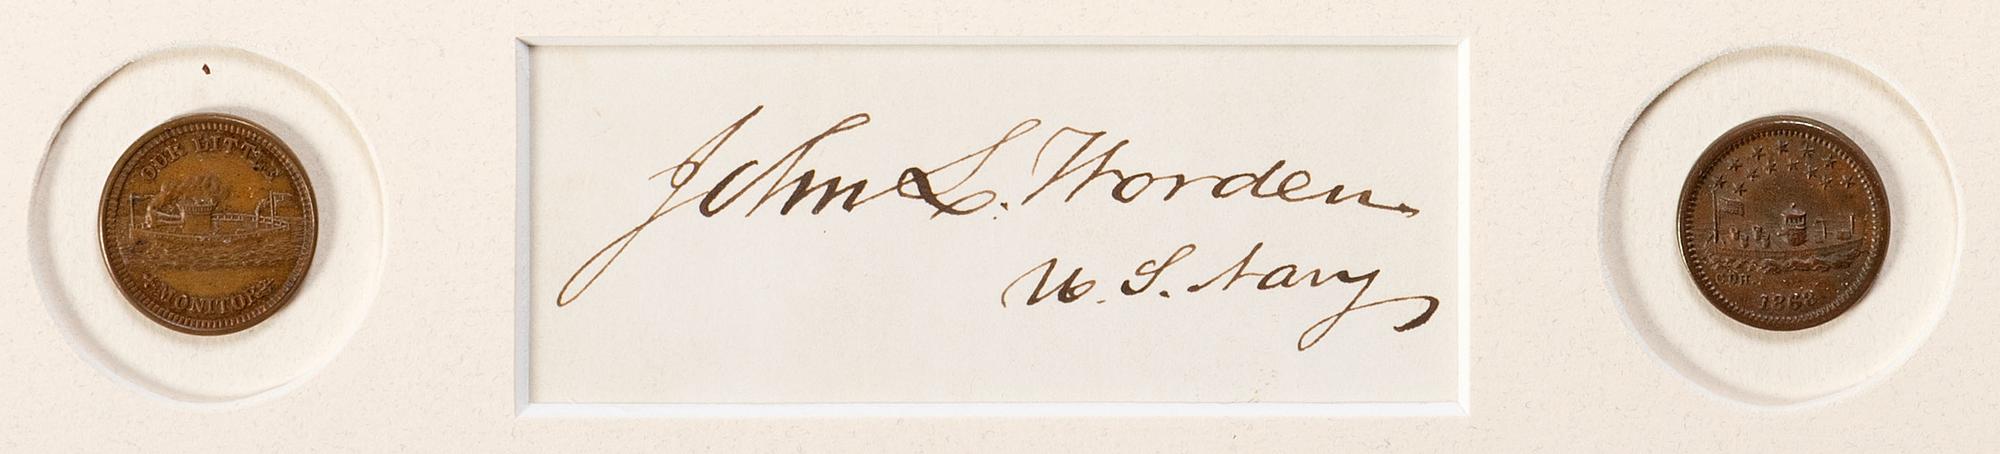 OUR LITTLE
MONITOR
John L. Worden
U. S. Navy
C.D.H.
1863